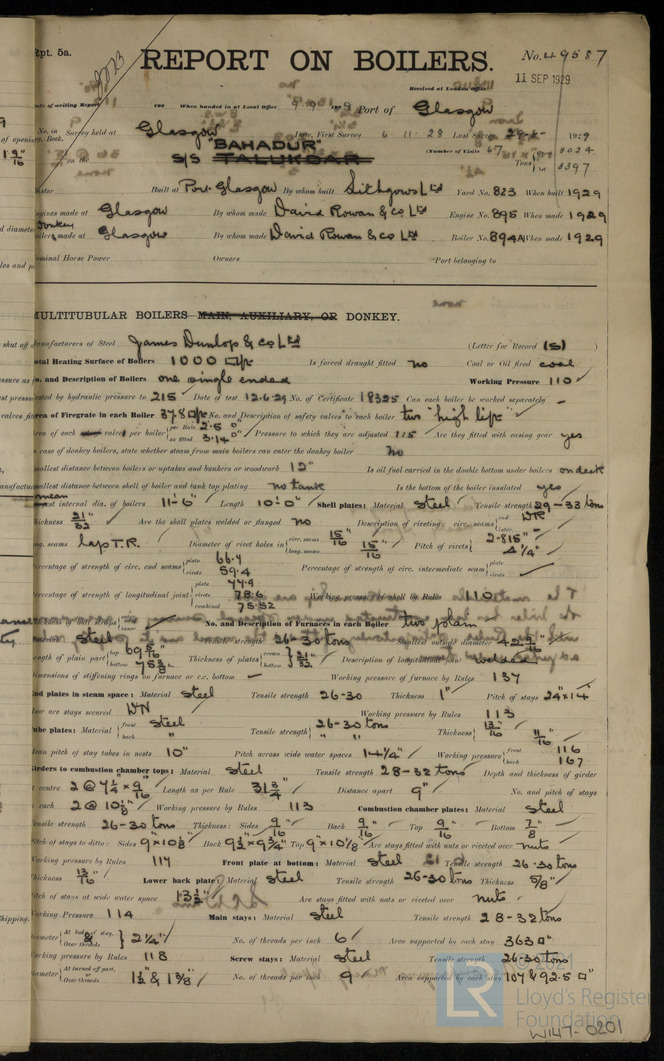 Rpt. 5a.
REPORT ON BOILERS.
No. 49587
11 SEP 1929
Received at London Office
Date of writing Report
When handed in at Local Office 9 9 1929 Port of Glasgow
No. in Survey held at Glasgow Date, First Survey 6-11-28 Last Survey 1929
Reg. Book.
on the S/S "BAHADUR" TALUKDAR (Number of Visits 67) Tons
Master Built at Port Glasgow By whom built Lithgows Ltd Yard No. 823 When built 1929
Engines made at Glasgow By whom made David Rowan & Co Ltd Engine No. 895 When made 1929
Donkey Boilers made at Glasgow By whom made David Rowan & Co Ltd Boiler No. 894A When made 1929
Nominal Horse Power Owners Port belonging to
MULTITUBULAR BOILERS MAIN, AUXILIARY, OR DONKEY.
Manufacturers of Steel James Dunlop & Co Ltd (Letter for Record (S))
Total Heating Surface of Boilers 1000 □ft Is forced draught fitted no Coal or Oil fired coal
No. and Description of Boilers one single ended Working Pressure 110
Tested by hydraulic pressure to 215 Date of test 12.6.29 No. of Certificate 18325 Can each boiler be worked separately –
Area of Firegrate in each Boiler 37.8 □ft No. and Description of safety valves to each boiler two "high lift"
Area of each valve per boiler per Rule 2.5 □" as fitted 3.14 □" Pressure to which they are adjusted 115 Are they fitted with easing gear yes
In case of donkey boilers, state whether steam from main boilers can enter the donkey boiler no
Smallest distance between boilers or uptakes and bunkers or woodwork 12" Is oil fuel carried in the double bottom under boilers on deck
Smallest distance between shell of boiler and tank top plating no tank Is the bottom of the boiler insulated yes
mean internal dia. of boilers 11'-6" Length 10'-0" Shell plates: Material Steel Tensile strength 29-33 tons
Thickness 21/32" Are the shell plates welded or flanged no Description of riveting: circ. seams end DR inter.
long. seams lap T.R. Diameter of rivet holes in circ. seams 15/16" long. seams 15/16" Pitch of rivets 2.815" 4 1/4"
Percentage of strength of circ. end seams plate 66.7 rivets 59.4 Percentage of strength of circ. intermediate seam plate rivets
Percentage of strength of longitudinal joint plate 77.9 rivets 78.6 combined 75.52 Working pressure of shell by Rules 110
No. and Description of Furnaces in each Boiler two plain
Material Steel Tensile strength 26-30 tons Smallest outside diameter
Length of plain part top 69 5/16" bottom 75 3/8" Thickness of plates crown bottom 21/32" Description of longitudinal joint welded
Dimensions of stiffening rings on furnace or c.c. bottom – Working pressure of furnace by Rules 137
End plates in steam space: Material Steel Tensile strength 26-30 Thickness 1" Pitch of stays 24"x14"
How are stays secured DN Working pressure by Rules 113
Tube plates: Material front Steel back " Tensile strength 26-30 tons " " Thickness 13/16" 11/16"
Mean pitch of stay tubes in nests 10" Pitch across wide water spaces 14 1/4" Working pressure front 116 back 167
Girders to combustion chamber tops: Material Steel Tensile strength 28-32 tons Depth and thickness of girder
at centre 2 @ 7 1/4" x 9/16" Length as per Rule 31 3/4" Distance apart 9" No. and pitch of stays
in each 2 @ 10 1/8" Working pressure by Rules 113 Combustion chamber plates: Material Steel
Tensile strength 26-30 tons Thickness: Sides 9/16" Back 9/16" Top 9/16" Bottom 7/8"
Pitch of stays to ditto: Sides 9"x10 1/8" Back 9 1/2"x9 3/4" Top 9"x10 1/8" Are stays fitted with nuts or riveted over nuts
Working pressure by Rules 114 Front plate at bottom: Material Steel Tensile strength 26-30 tons
Thickness 13/16" Lower back plate: Material Steel Tensile strength 26-30 tons Thickness 5/8"
Pitch of stays at wide water space 13 1/2" Are stays fitted with nuts or riveted over nuts
Working Pressure 114 Main stays: Material Steel Tensile strength 28-32 tons
Diameter At body of stay, & Over threads 2 1/4" No. of threads per inch 6 Area supported by each stay 363 □"
Working pressure by Rules 118 Screw stays: Material Steel Tensile strength 26-30 tons
Diameter At turned off part, or Over threads 1 1/2" & 1 3/8" No. of threads per inch 9 Area supported by each stay 107 & 92.5 □"
© 2021
LR Lloyd's Register Foundation
W147-0201